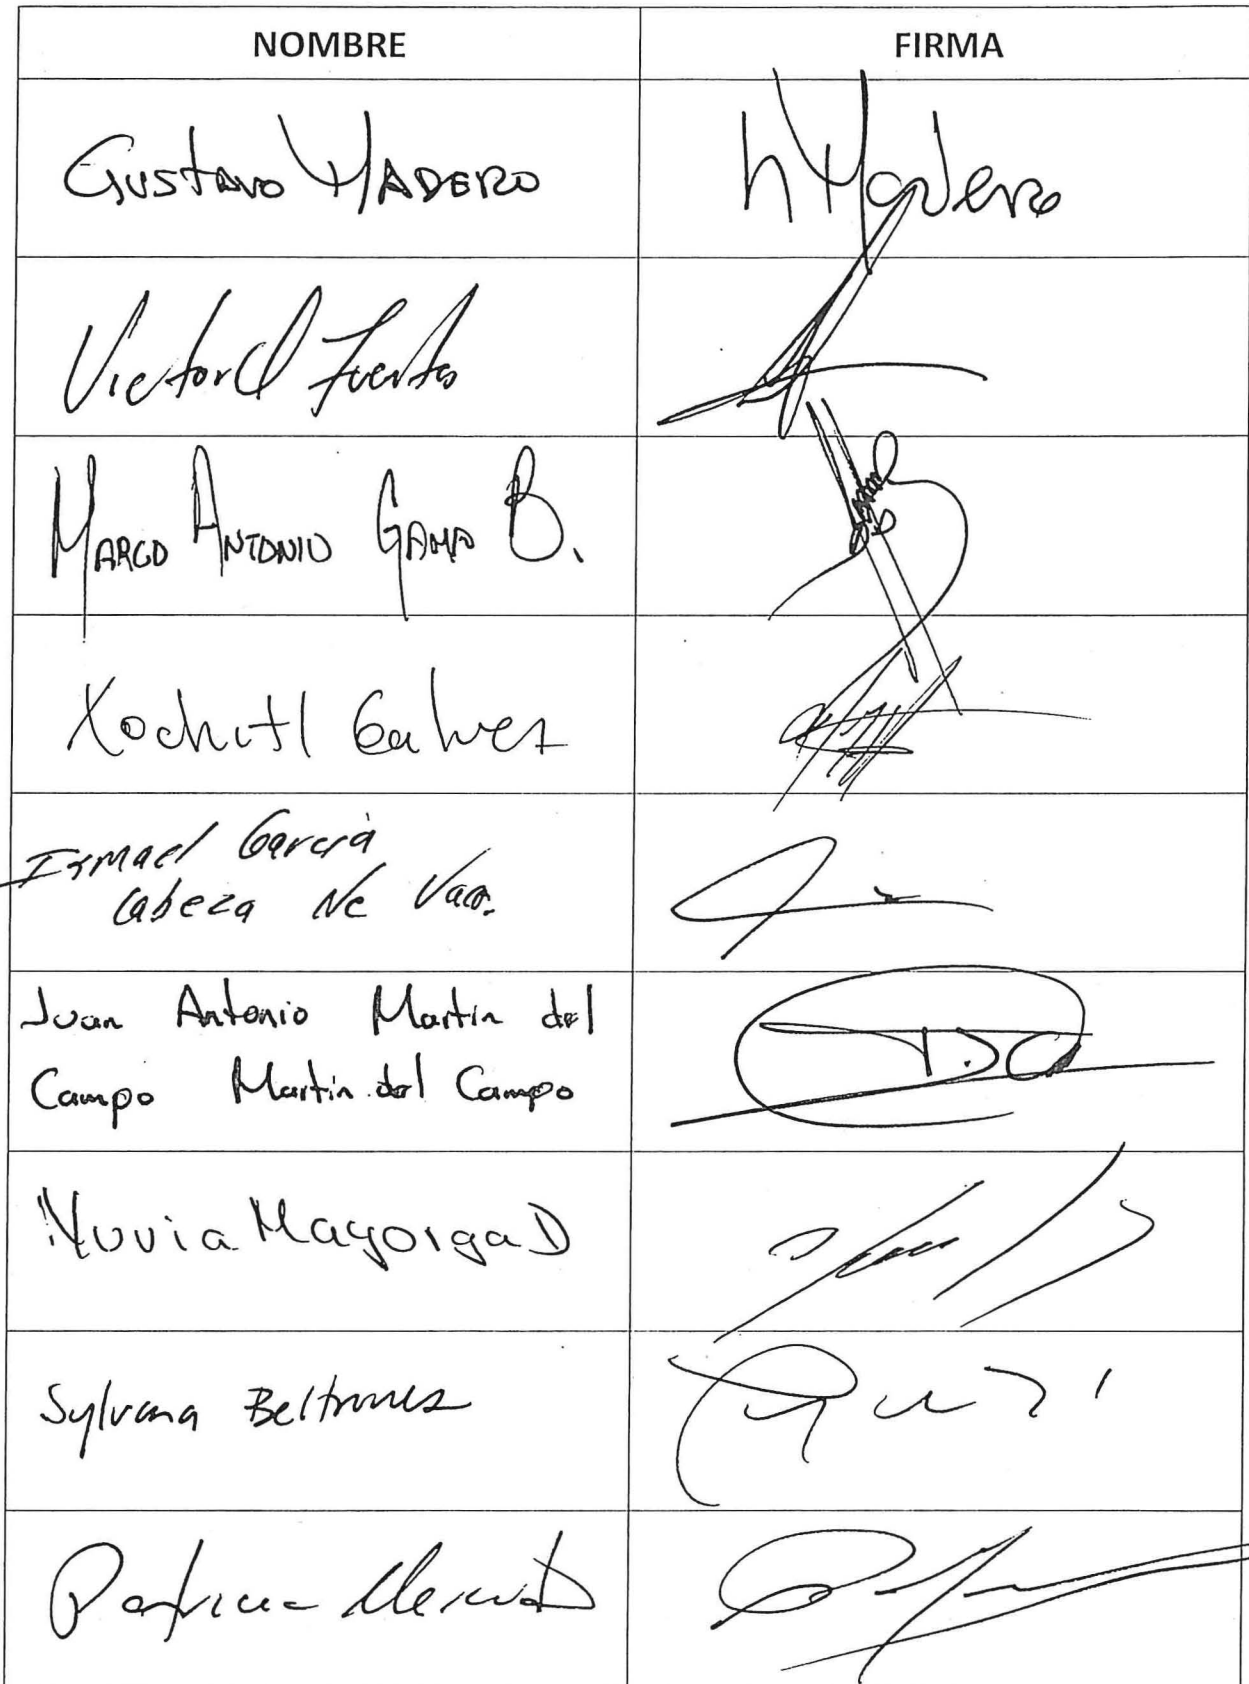 NOMBRE FIRMA
Gustavo MADERO
Madero
Victor O Fuentes
MARCO ANTONIO GAMA B.
Xochitl Galvez
Ismael García
Cabeza de Vaca.
Juan Antonio Martin del
Campo Martin del Campo
Nuvia Mayorga D
Sylvana Beltrones
Patricia Mercado